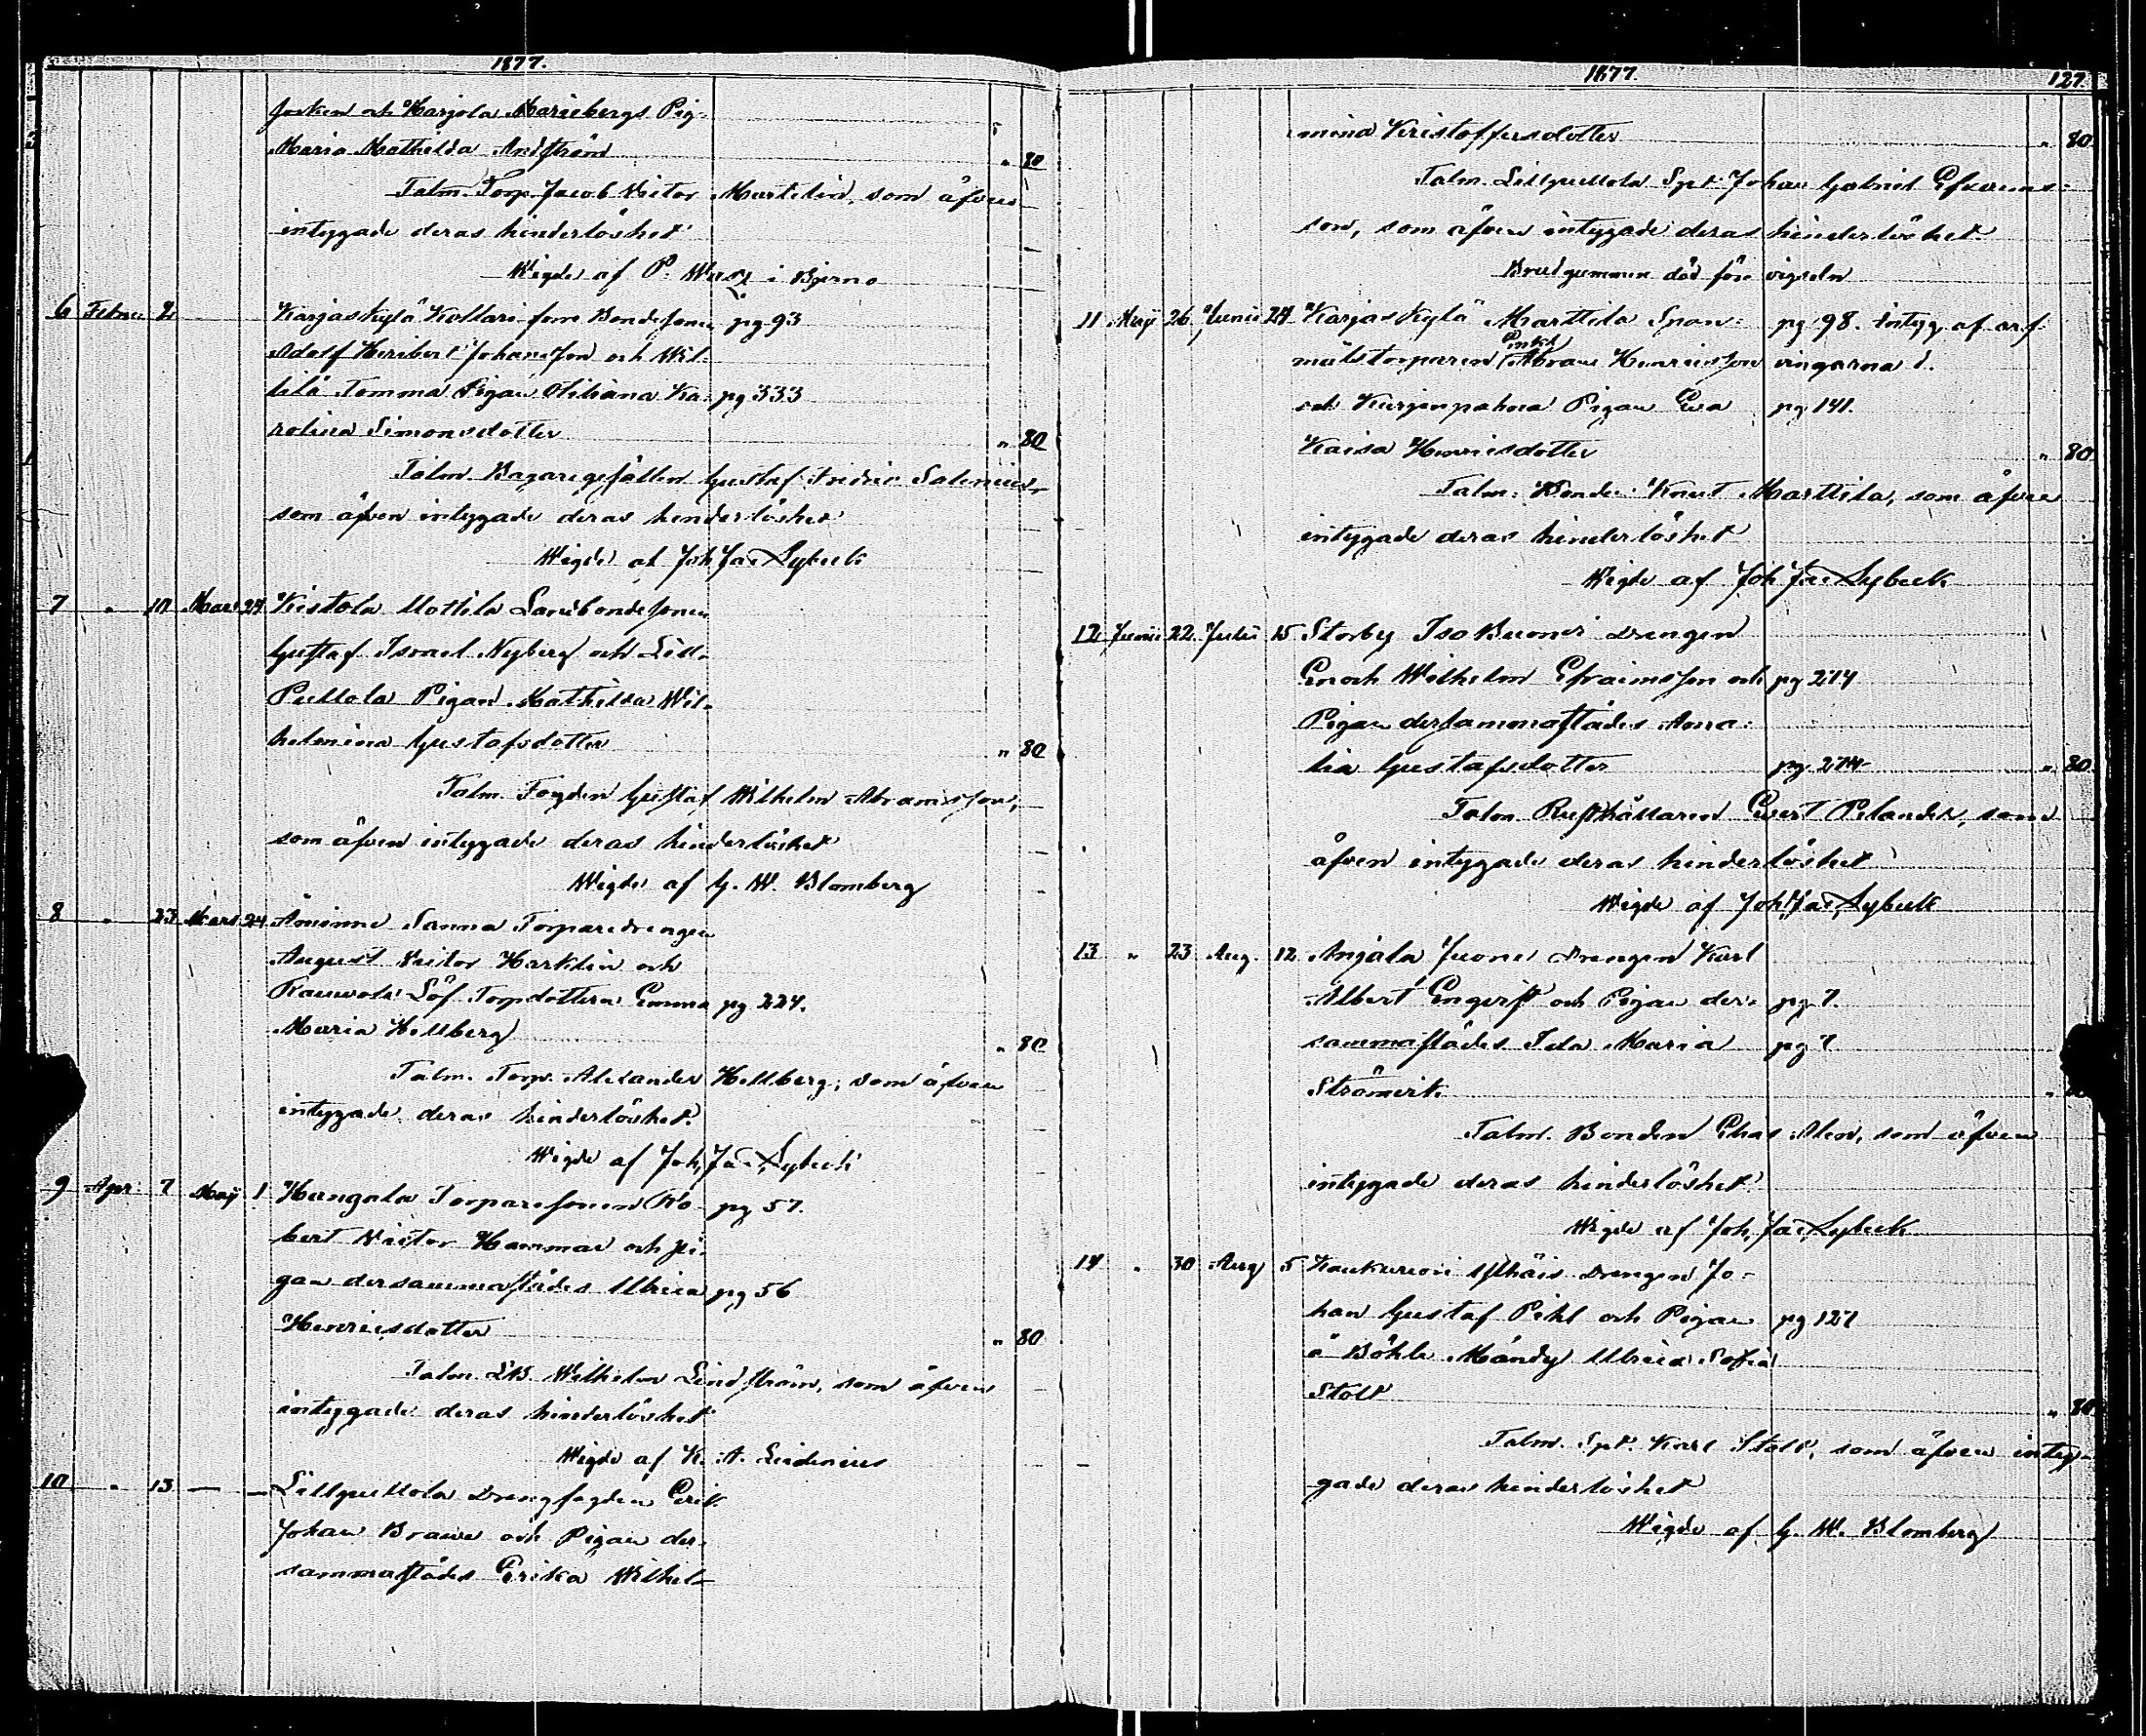 1877.
och Marjola Mariebergs Pig.
Maria Mathilda Andström " 80
Talm. Torp. Jacob Victor Martelin, som äfven
intygade deras hinderlöshet
Wigde af P. i Bjerno
6 Febru 2 Karjaskylä Kollari forre Bondesonen pg 93
Adolf Heribert Johansson och Wil-
lilä Tomma Pigan Ka- pg 333
rolina Simonsdotter " 80
Talm. Bagaregesällen Gustaf Fredric Salenius
som äfven intygade deras hinderlöshet
Wigde af Joh Jac Lybeck
7 " 17 Mars 24 Kistola Uottila Landbondesonen
Gustaf Israel Nyberg och Lill-
Pullola Pigan Mathilda Wil-
helmina Gustafsdotter " 80
Talm. Fogden Gustaf Wilhelm Abramsson,
som äfven intygade deras hinderlöshet
Wigde af G. W. Blomberg
8 " 23 Mars 24 Åminne Sanna Torparedrengen
August Victor Harklin och
Rauwola Löf. Torpdottern Emma pg 224.
Maria Hellberg " 80
Talm. Torp. Alexander Hellberg, som äfven
intygade deras hinderlöshet.
Wigde af Joh, Jac, Lybeck
9 Apr. 7 Maij 1 Hungola Torparesonen Ro- pg 57.
bert Victor Hammar och pi-
gan dersammastädes Ulrica pg 56
Henricsdotter " 80
Talm. LB. Wilhelm Lindström, som äfven
intygade deras hinderlöshet
Wigde af K. A. Leidenius
10 " 13 — — Lillpullola Drengfogden Erik
Johan Brawe och Pigan der-
sammastädes Erika Wilhel-
1877. 127.
mina Kristoffersdotter " 80
Talm. Lillpullola Spt. Johan Gabriel Efraims-
son, som äfven intygade deras hinderlöshet.
Brudgummen död före vigseln
11 Maij 26 Junii 24 Karjaskylä Marttila Span- pg 98. Intyg af arf-
målstorparen Enkl Abram Henricsson vingarna d.
och Kurjenpahna Pigan Eva pg 141.
Kaisa Henricsdotter " 80
Talm. Bonden Knut Marttila, som äfven
intygade deras hinderlöshet
Wigde af Joh Jac Lybeck
12 Junii 22 Julii 15 Storby Iso Buoni Drengen
Enoch Wilhelm Efraimsson och pg 274
Pigan dersammastädes Ama-
lia Gustafsdotter pg 274 " 80
Talm. Rusthållaren Evert Pelander, som
äfven intygade deras hinderlöshet
Wigde af Joh Jac, Lybeck
13 " 23 Aug. 12 Anjala Juoni Drengen Karl
Albert Engqvist och Pigan der- pg 7.
sammastädes Ida Maria pg 7
Strömvik "
Talm. Bonden Elias Alen, som äfven
intygade deras hinderlöshet.
Wigde af Joh, Jac Lybeck
14 " 30 Aug 5 Kaukurioi Ylhäis Drengen Jo-
han Gustaf Pihl och Pigan pg 127
å Böhle Måndy Ulrica Sofia
Stolt " 80
Talm. Spt. Karl Stolt, som äfven inty-
gade deras hinderlöshet
Wigde af G. W. Blomberg